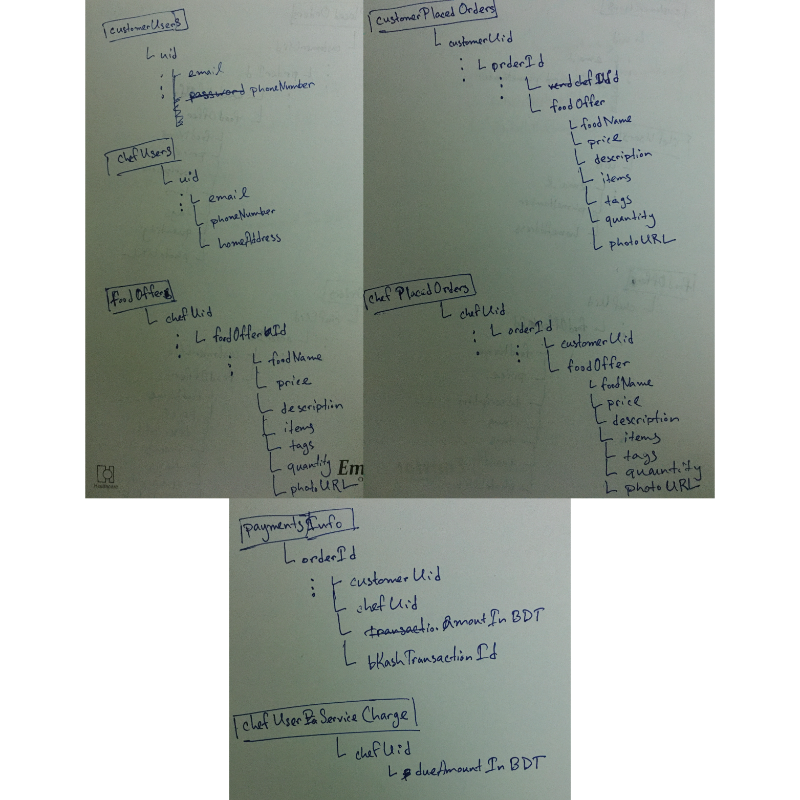 customerUsers
uid
email
password phoneNumber
chefUsers
uid
email
phoneNumber
homeAddress
foodOffers
chefUid
foodOfferId
foodName
price
description
items
tags
quantity
photoURL
Em
customerPlacedOrders
customerUid
orderId
chefUid
foodOffer
foodName
price
description
items
tags
quantity
photoURL
chefPlacedOrders
chefUid
orderId
customerUid
foodOffer
foodName
price
description
items
tags
quauntity
photoURL
paymentsInfo
orderId
customerUid
chefUid
transaction AmountInBDT
bKashTransactionId
chefUserServiceCharge
chefUid
dueAmountInBDT